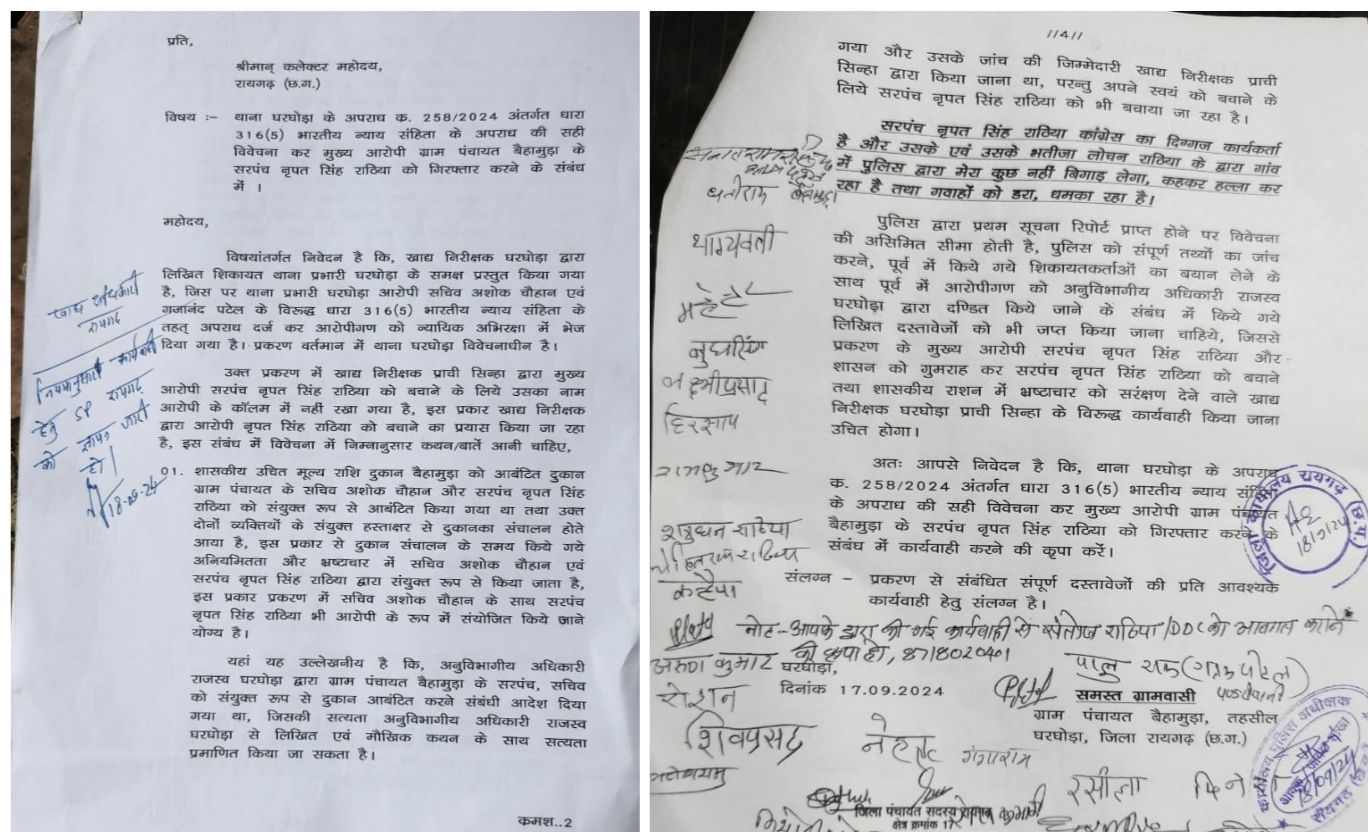 प्रति,
श्रीमान् कलेक्टर महोदय,
रायगढ़ (छ.ग.)
विषय :– थाना घरघोड़ा के अपराध क. 258/2024 अंतर्गत धारा
316(5) भारतीय न्याय संहिता के अपराध की सही
विवेचना कर मुख्य आरोपी ग्राम पंचायत बैहामुड़ा के
सरपंच नृपत सिंह राठिया को गिरफ्तार करने के संबंध
में ।
महोदय,
विषयांतर्गत निवेदन है कि, खाद्य निरीक्षक घरघोड़ा द्वारा
लिखित शिकायत थाना प्रभारी घरघोड़ा के समक्ष प्रस्तुत किया गया
है, जिस पर थाना प्रभारी घरघोड़ा आरोपी सचिव अशोक चौहान एवं
गजानंद पटेल के विरूद्ध धारा 316(5) भारतीय न्याय संहिता के
तहत् अपराध दर्ज कर आरोपीगण को न्यायिक अभिरक्षा में भेज
दिया गया है। प्रकरण वर्तमान में थाना घरघोड़ा विवेचनाधीन है।
उक्त प्रकरण में खाद्य निरीक्षक प्राची सिन्हा द्वारा मुख्य
आरोपी सरपंच नृपत सिंह राठिया को बचाने के लिये उसका नाम
आरोपी के कॉलम में नहीं रखा गया है, इस प्रकार खाद्य निरीक्षक
द्वारा आरोपी नृपत सिंह राठिया को बचाने का प्रयास किया जा रहा
है, इस संबंध में विवेचना में निम्नानुसार कथन/बातें आनी चाहिए,
01. शासकीय उचित मूल्य राशि दुकान बैहामुड़ा को आबंटित दुकान
ग्राम पंचायत के सचिव अशोक चौहान और सरपंच नृपत सिंह
राठिया को संयुक्त रूप से आबंटित किया गया था तथा उक्त
दोनों व्यक्तियों के संयुक्त हस्ताक्षर से दुकानका संचालन होते
आया है, इस प्रकार से दुकान संचालन के समय किये गये
अनियमितता और भ्रष्टाचार में सचिव अशोक चौहान एवं
सरपंच नृपत सिंह राठिया द्वारा संयुक्त रूप से किया जाता है,
इस प्रकार प्रकरण में सचिव अशोक चौहान के साथ सरपंच
नृपत सिंह राठिया भी आरोपी के रूप में संयोजित किये जाने
योग्य है।
यहां यह उल्लेखनीय है कि, अनुविभागीय अधिकारी
राजस्व घरघोड़ा द्वारा ग्राम पंचायत बैहामुड़ा के सरपंच, सचिव
को संयुक्त रूप से दुकान आबंटित करने संबंधी आदेश दिया
गया था, जिसकी सत्यता अनुविभागीय अधिकारी राजस्व
घरघोड़ा से लिखित एवं मौखिक कथन के साथ सत्यता
प्रमाणित किया जा सकता है।
कमश..2
खाद्य अधिकारी
रायगढ़
नियमानुसार कार्यवाही
हेतु SP रायगढ़
को ज्ञापन जारी
हो।
18-09-24
//4//
गया और उसके जांच की जिम्मेदारी खाद्य निरीक्षक प्राची
सिन्हा द्वारा किया जाना था, परन्तु अपने स्वयं को बचाने के
लिये सरपंच नृपत सिंह राठिया को भी बचाया जा रहा है।
सरपंच नृपत सिंह राठिया कांग्रेस का दिग्गज कार्यकर्ता
है और उसके एवं उसके भतीजा लोचन राठिया के द्वारा गांव
में पुलिस द्वारा मेरा कुछ नहीं बिगाड़ लेगा, कहकर हल्ला कर
रहा है तथा गवाहों को डरा, धमका रहा है।
पुलिस द्वारा प्रथम सूचना रिपोर्ट प्राप्त होने पर विवेचना
की असिमित सीमा होती है, पुलिस को संपूर्ण तथ्यों का जांच
करने, पूर्व में किये गये शिकायतकर्ताओं का बयान लेने के
साथ पूर्व में आरोपीगण को अनुविभागीय अधिकारी राजस्व
घरघोड़ा द्वारा दण्डित किये जाने के संबंध में किये गये
लिखित दस्तावेजों को भी जप्त किया जाना चाहिये, जिससे
प्रकरण के मुख्य आरोपी सरपंच नृपत सिंह राठिया और
शासन को गुमराह कर सरपंच नृपत सिंह राठिया को बचाने
तथा शासकीय राशन में भ्रष्टाचार को सरंक्षण देने वाले खाद्य
निरीक्षक घरघोड़ा प्राची सिन्हा के विरूद्ध कार्यवाही किया जाना
उचित होगा।
अतः आपसे निवेदन है कि, थाना घरघोड़ा के अपराध
क. 258/2024 अंतर्गत धारा 316(5) भारतीय न्याय संहिता
के अपराध की सही विवेचना कर मुख्य आरोपी ग्राम पंचायत
बैहामुड़ा के सरपंच नृपत सिंह राठिया को गिरफ्तार करने के
संबंध में कार्यवाही करने की कृपा करें।
संलग्न – प्रकरण से संबंधित संपूर्ण दस्तावेजों की प्रति आवश्यक
कार्यवाही हेतु संलग्न है।
नोट-आपके द्वारा की गई कार्यवाही से संतोष राठिया/DDC को अवगत कराने
की कृपा हो, 8718020401
घरघोड़ा,
दिनांक 17.09.2024
समस्त ग्रामवासी
ग्राम पंचायत बैहामुड़ा, तहसील
घरघोड़ा, जिला रायगढ़ (छ.ग.)
भाग्यवती
रामकुमार
अरुण कुमार
रोशन
शिवप्रसाद
गंगाराम
रसीला
जिला पंचायत सदस्य रायगढ़
क्षेत्र क्रमांक 17
जिला कार्यालय रायगढ़ (छ.ग.)
18/9/24
कार्यालय पुलिस अधीक्षक
18/09/24